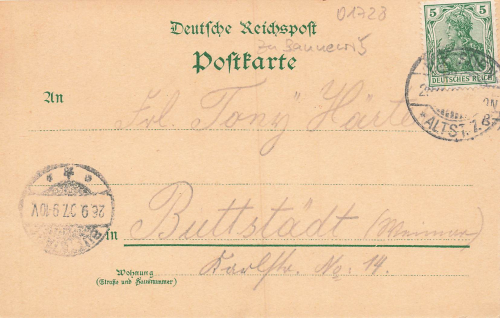 01728
Deutsche Reichspost
zu Bannewitz
Postkarte
5 5
DEUTSCHES REICH
* ALTST. 7. 8.
An Frl. Tony Härtel
26.9.07.9-10V.
in Buttstädt (Weimar)
Karlstr. No: 14.
Wohnung
(Straße und Hausnummer)